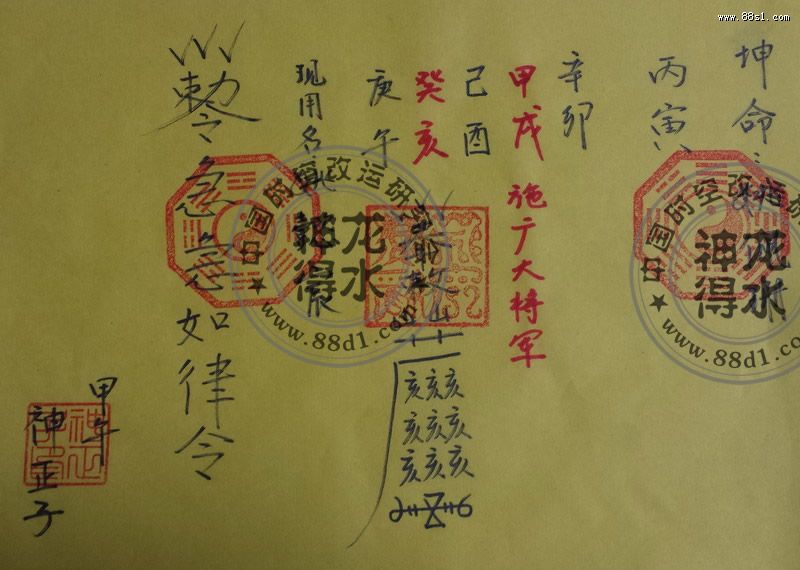 www.88s1.com
坤命:
丙寅
辛卯
甲戌 施广大将军
己酉
癸亥
亥亥亥
亥亥亥
亥亥亥
庚午
现用名
勅令急急如律令
甲午
神正子
中国时空改运研
神龙
得水
www.88d1.com
中国时空改运研
神龙
得水
www.88d1.com